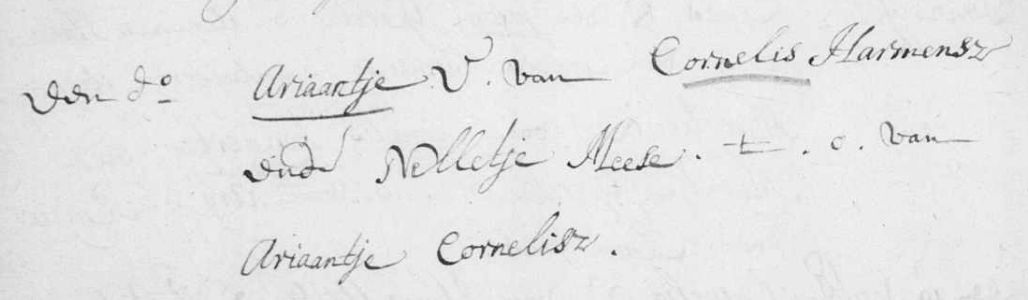 den do Ariaantje V. van Cornelis Harmensz
end Nelletje Meese. t. o. van
Ariaantje Cornelisz.